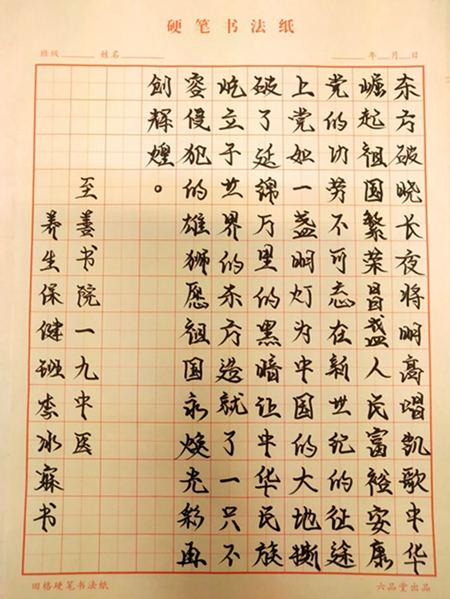 硬笔书法纸
班级 姓名 年 月 日
东方破晓长夜将明高唱凯歌中华
崛起祖国繁荣昌盛人民富裕安康
党的功劳不可忘在新世纪的征途
上党如一盏明灯为中国的大地撕
破了延绵万里的黑暗让中华民族
屹立于世界的东方造就了一只不
容侵犯的雄狮愿祖国永焕光彩再
创辉煌。
至善书院一九中医
养生保健班李冰寐书
田格硬笔书法纸
六品堂出品